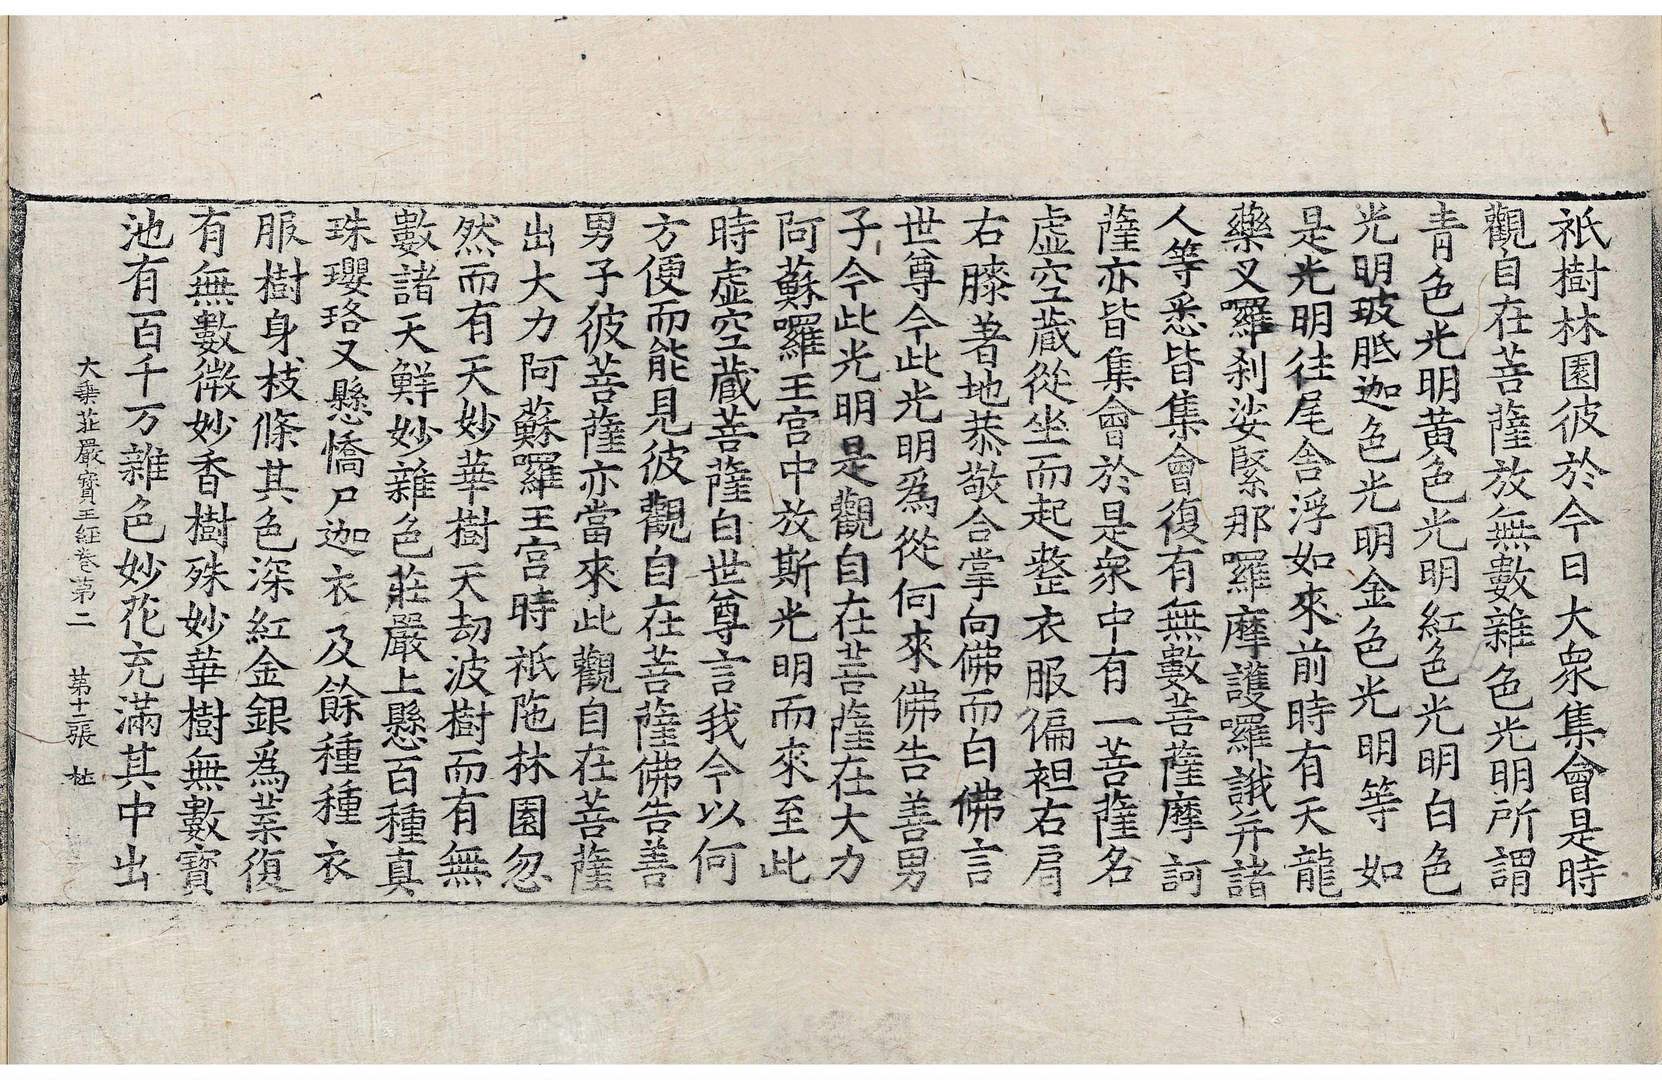 祇樹林園彼於今日大衆集會是時
觀自在菩薩放無數雜色光明所謂
青色光明黃色光明紅色光明白色
光明玻胝迦色光明金色光明等如
是光明往尾舍浮如來前時有天龍
藥叉囉剎娑緊那囉摩護囉誐并諸
人等悉皆集會復有無數菩薩摩訶
薩亦皆集會於是衆中有一菩薩名
虛空藏從坐而起整衣服徧袒右肩
右膝著地恭敬合掌向佛而白佛言
世尊今此光明爲從何來佛告善男
子今此光明是觀自在菩薩在大力
阿蘇囉王宮中放斯光明而來至此
時虛空藏菩薩白世尊言我今以何
方便而能見彼觀自在菩薩佛告善
男子彼菩薩亦當來此觀自在菩薩
出大力阿蘇囉王宮時祇陁林園忽
然而有天妙華樹天劫波樹而有無
數諸天鮮妙雜色莊嚴上懸百種真
珠瓔珞又懸憍尸迦衣及餘種種衣
服樹身枝條其色深紅金銀爲葉復
有無數微妙香樹殊妙華樹無數寶
池有百千万雜色妙花充滿其中出
大乗莊嚴寶王経卷第二 第十二張